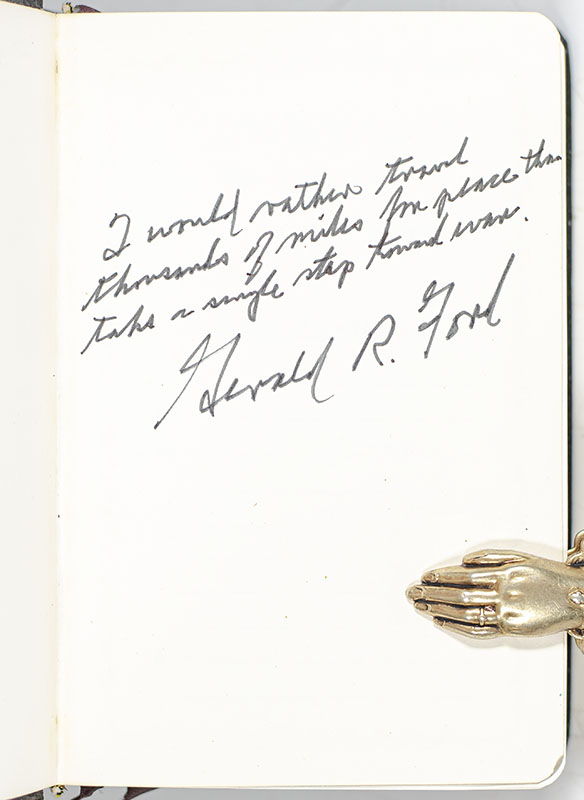 I would rather travel
thousands of miles for peace than
take a single step toward war.
Gerald R. Ford